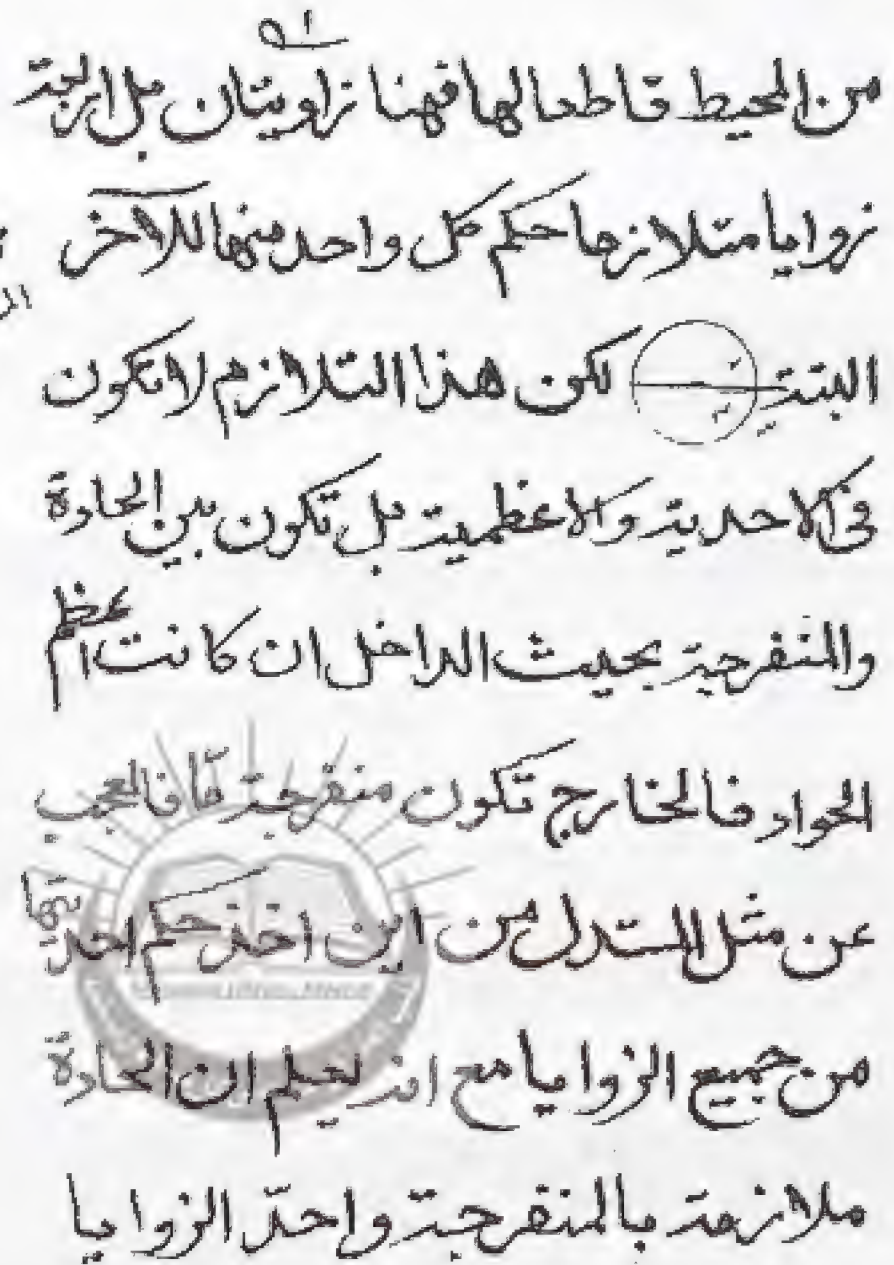 من المحيط قاطعا لها فهنا زاويتان بل اربعة
زوايا متلازما حكم كل واحد منها للآخر
البتة لكن هذا التلازم لا تكون
في الاحدية والاعظمية بل تكون بين الحادة
والمنفرجة بحيث الداخل ان كانت اعظم
الحواد فالخارج تكون منفرجة ما فالعجب
عن مثل المستدل من اين اخذ حكم احديتها
من جميع الزوايا مع انه يعلم ان الحادة
ملازمة بالمنفرجة واحدّ الزوايا